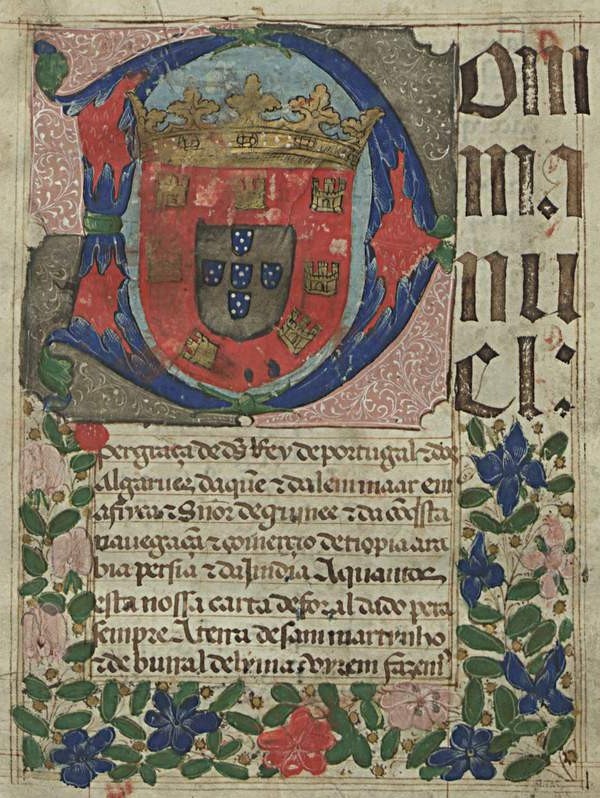 Dom
ma
nu
el:
per graça de ds Rey de portugal τ dos
Algarues daquẽ τ dalem maar em
africa τ Snõr de guinee τ da cõq̃sta
nauegaçã τ comerçio de tiopia ara
bia persia τ da Jndia A quantos
esta nossa carta de foral dado pera
sempre A terra de sam martinho
τ de buiral de lyma virem fazem